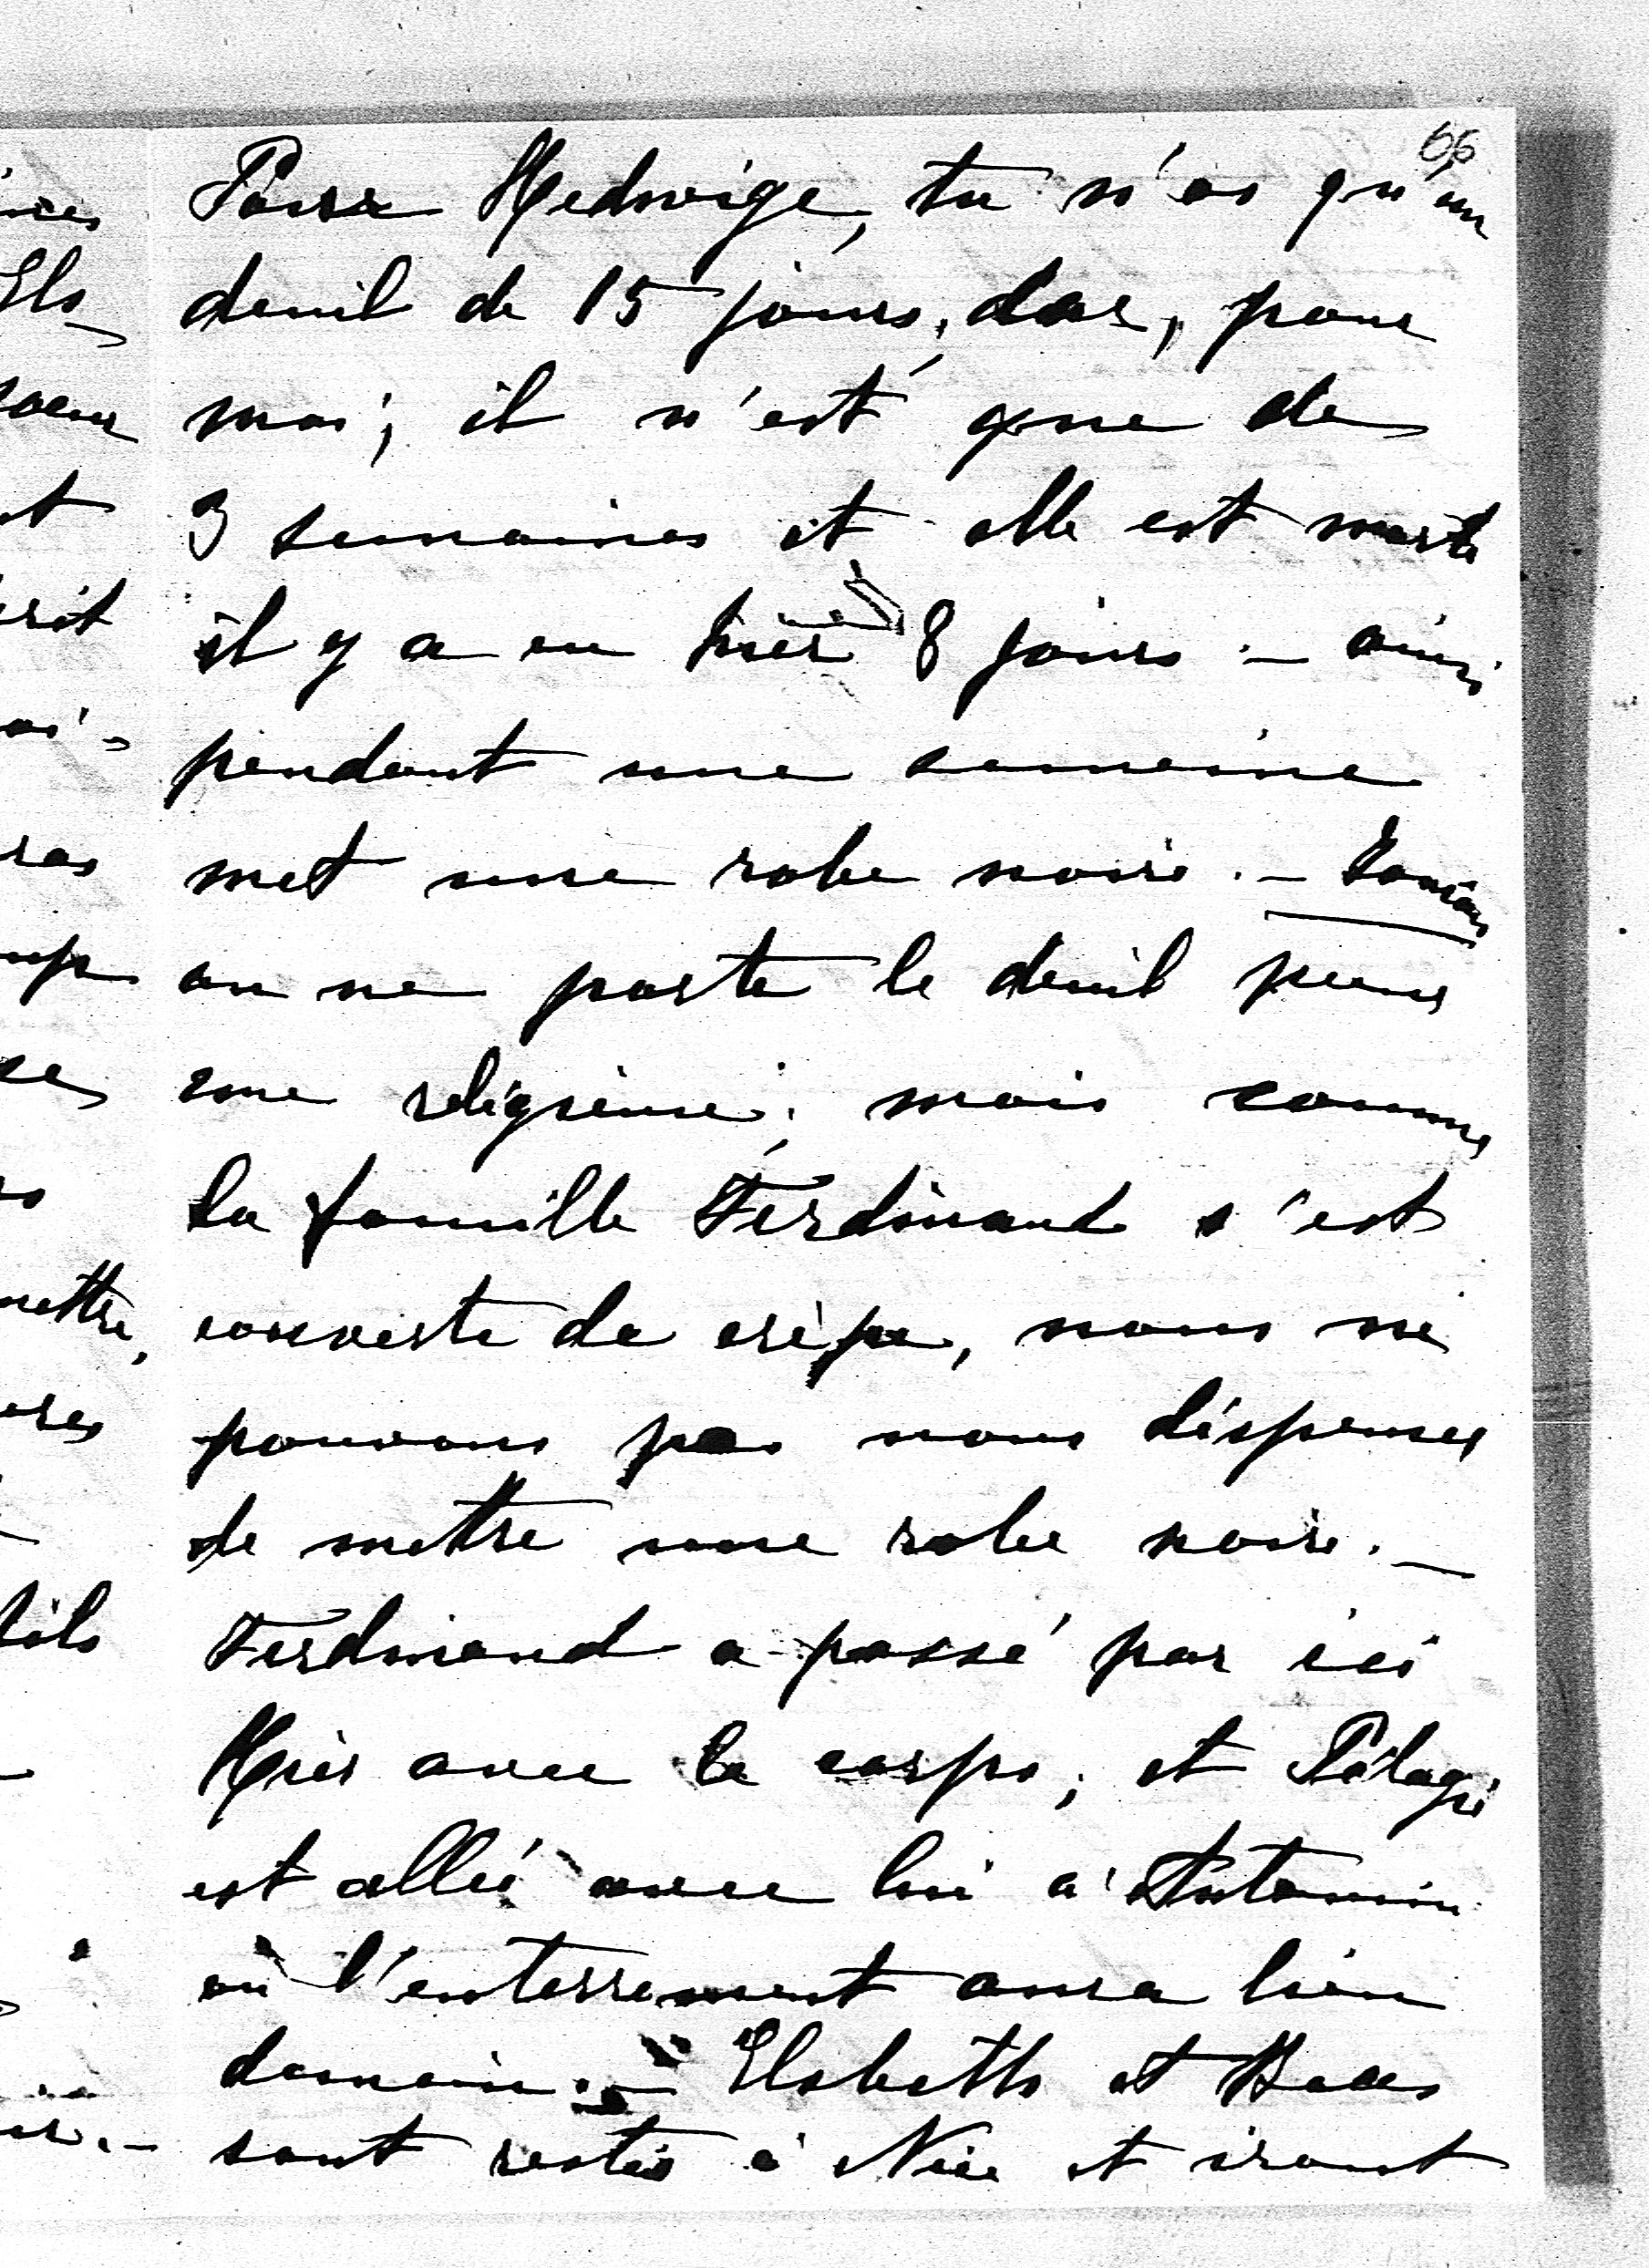 66
Pour Hedwige, tu n'as qu'un
deuil de 15 jours, car, pour
moi, il n'est que de
3 semaines et elle est morte
il y a eu hier 8 jours. — ainsi
pendant une semaine
met une robe noire. — Jamais
on ne porte le deuil pour
une religieuse; mais comme
la famille Ferdinand s'est
couverte de crêpe, nous ne
pouvons pas nous dispenser
de mettre une robe noire. —
Ferdinand a passé par ici
Hier avec le corps; et Pélagie
est allée avec lui à Antonin
où l'enterrement aura lieu
demain. — Elsbeth et
sont restés à Nice et iront